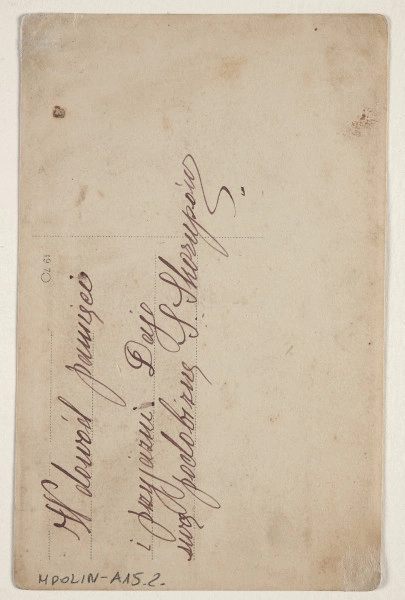 W dowód pamięci
i przyjazni Daje
swą podobiznę S. Skorupów
MPOLIN-A15.2.